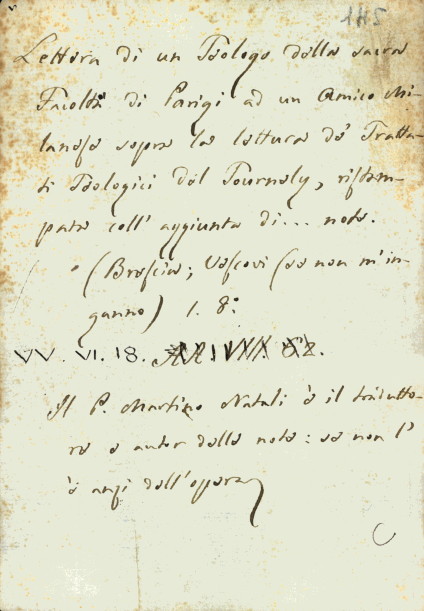 Lettera di un Teologo della sacra
Facoltà di Parigi ad un Amico Mi-
lanese sopra la lettura de' Tratta-
ti Teologici del Tournely, ristam-
pata coll' aggiunta di... note.
(Brescia; Vescovi (se non m'in-
ganno) 1. 8°
VV. VI. 18.
Il P. Martino Natali è il tradutto-
re e autor delle note: se non l'
è anzi dell'opera